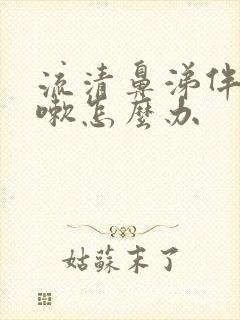 流清鼻涕伴
嗽怎麼办
姑蘇末了